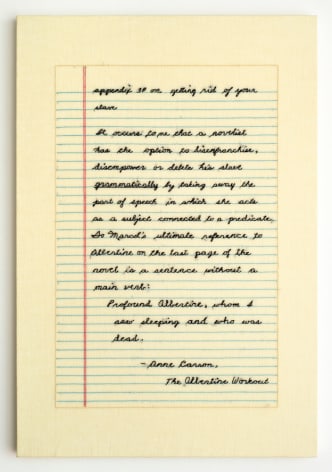 appendix 39 on getting rid of your
slave
It occurs to me that a novelist
has the option to disenfranchise,
disempower or delete his slave
grammatically by taking away the
part of speech in which she acts
as a subject connected to a predicate.
So Marcel's ultimate reference to
Albertine on the last page of the
novel is a sentence without a
main verb:
Profound Albertine, whom I
saw sleeping and who was
dead.
- Anne Carson,
The Albertine Workout